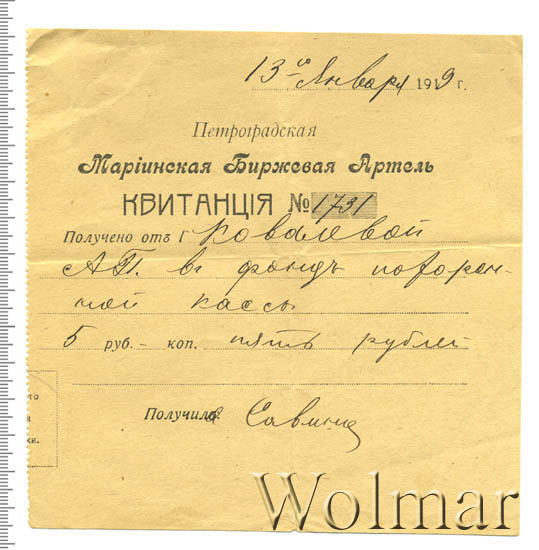 13го Января 1919 г.
Петроградская
Марiинская Биржевая Артель
КВИТАНЦIЯ № 1731
Получено отъ г Ковалевой
А.П. въ фондъ похорон-
ной кассы
5 руб. - коп. пять рублей
то
и
ки.
Получила Савина
Wolmar